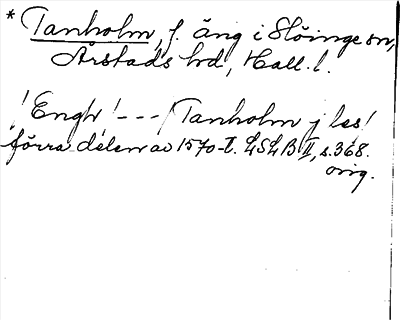 * Tanholm, f. äng i Slöinge sn,
Årstads hd, Hall. l.
! Engh ! --- / Tanholm j les /
förra delen av 1570-t. LSLB II, s. 368.
orig.